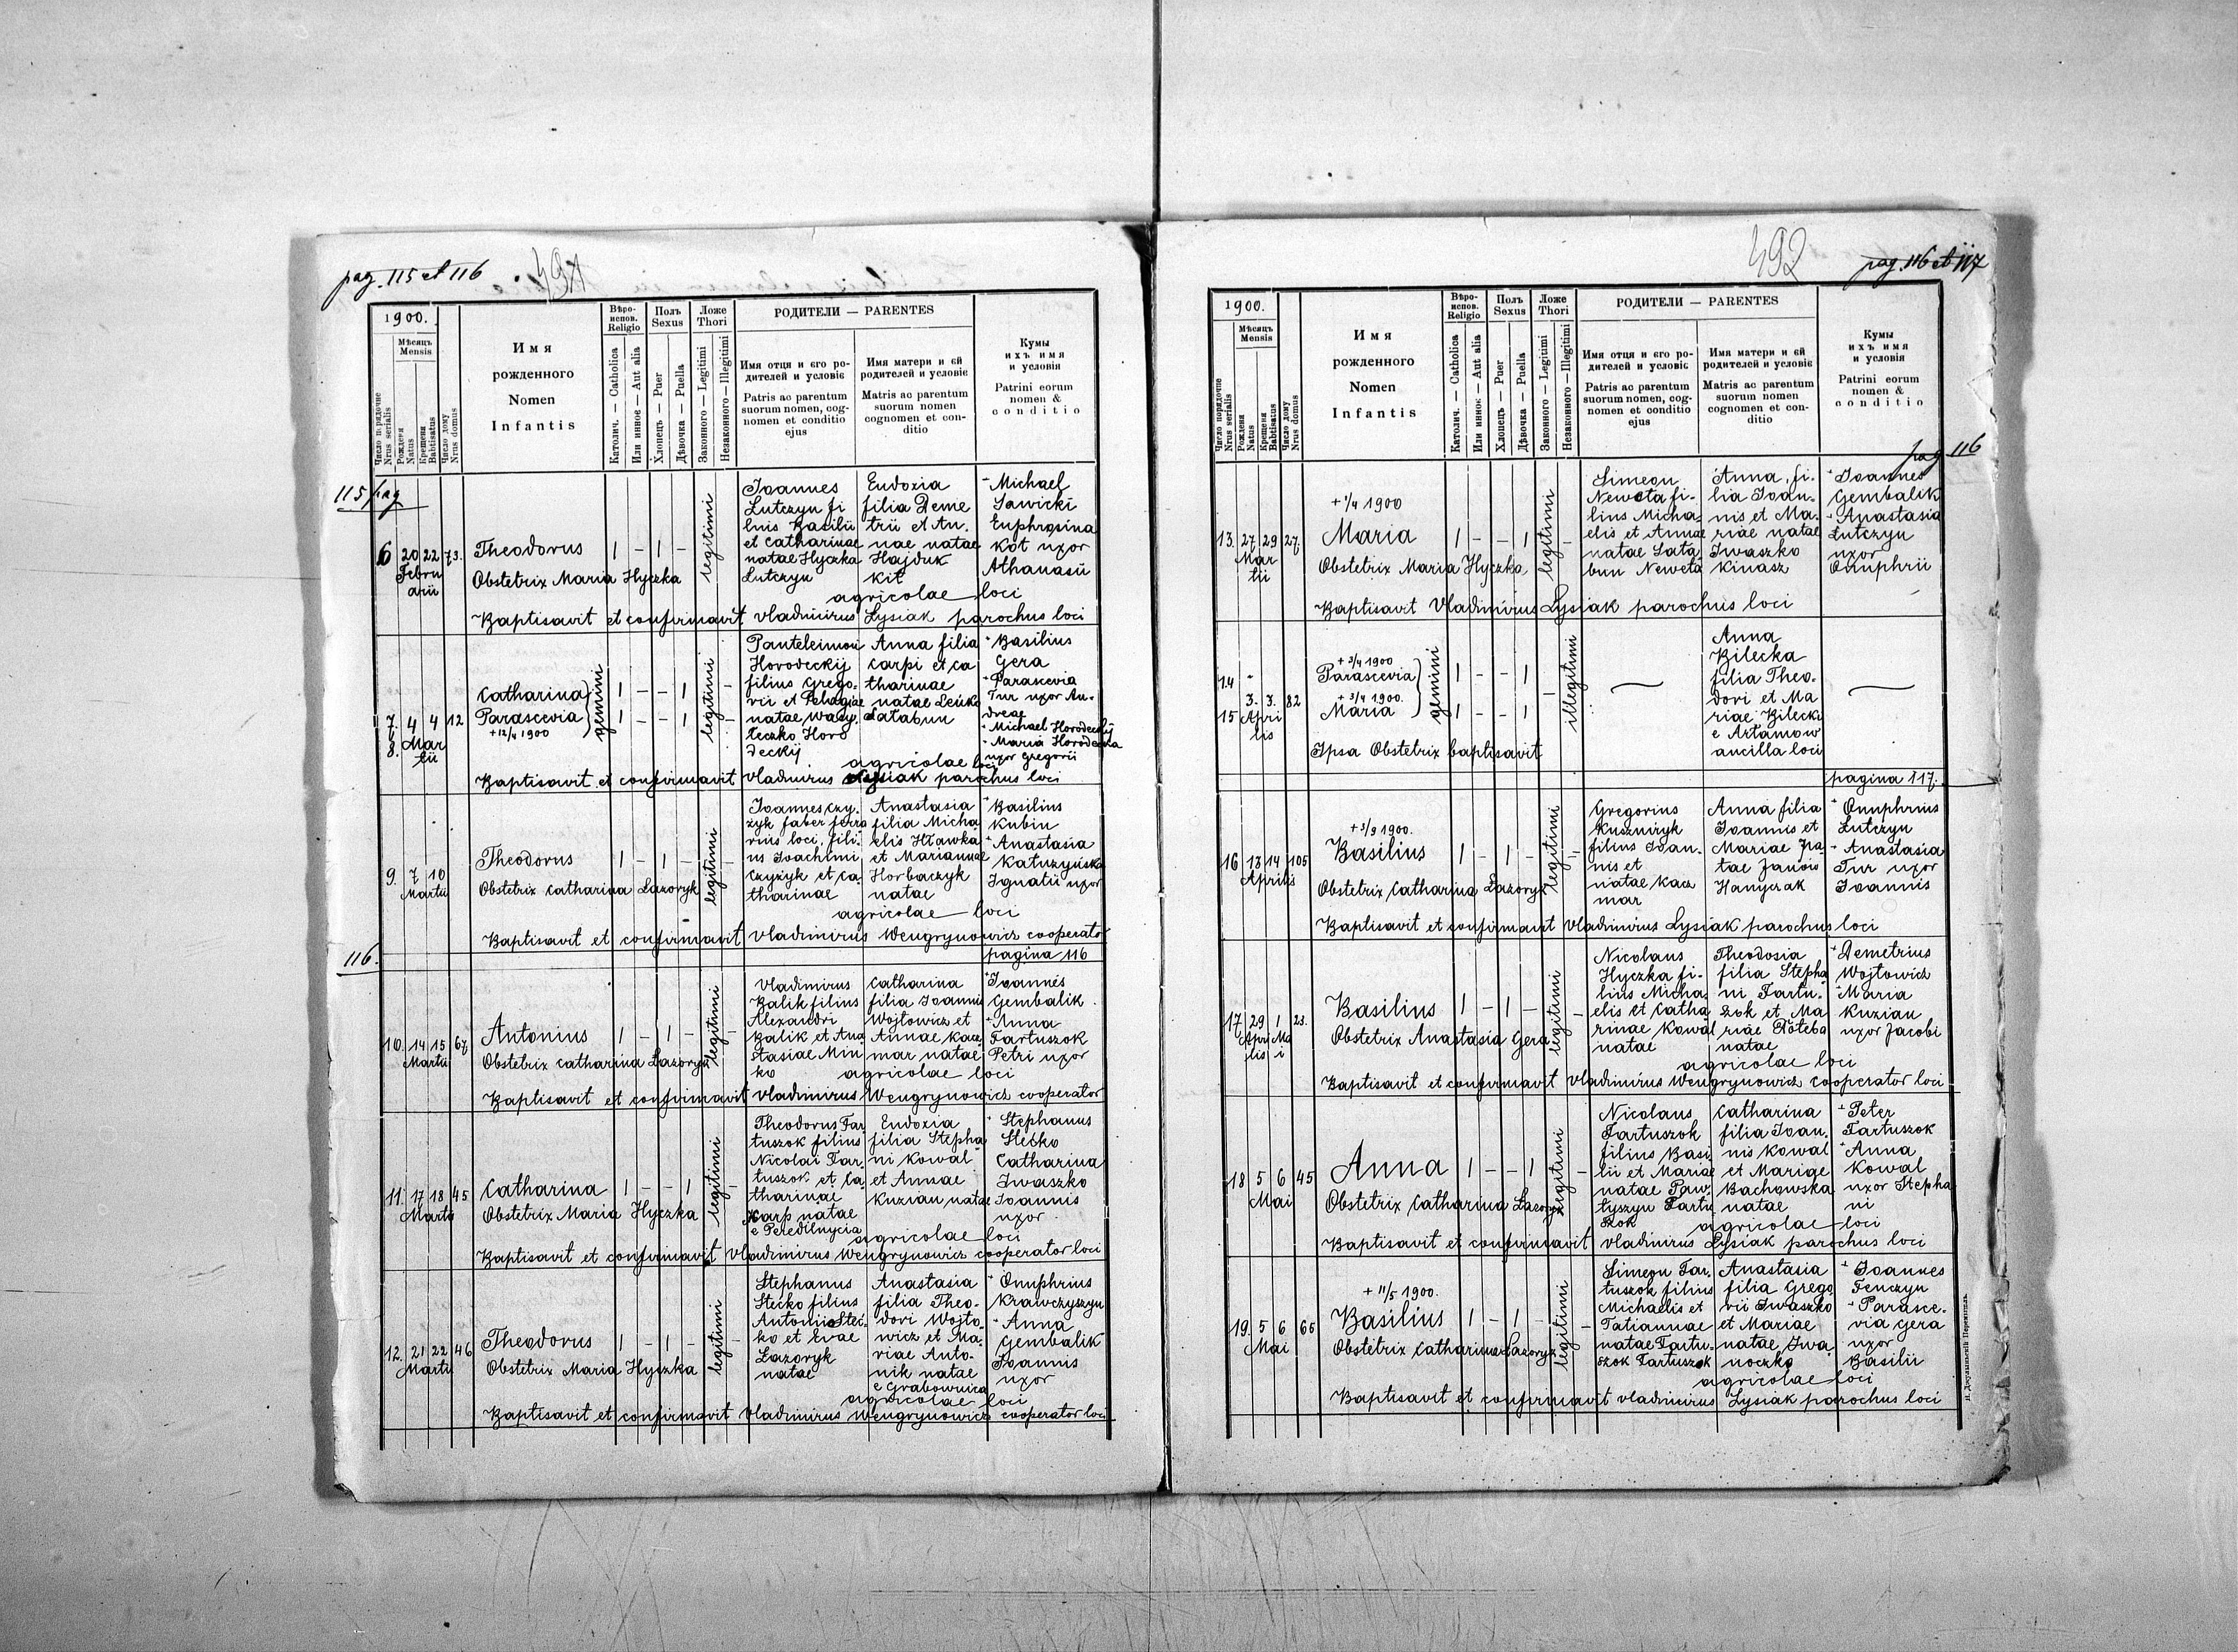 pag. 115 et 116
491
1900.
Мѣсяцъ
Mensis
Число порядочне
Nrus serialis
Рождена
Natus
Крещена
Babtisatus
Число дому
Nrus domus
Имя
рожденного
Nomen
Infantis
Вѣро-
испов.
Religio
Католич. — Catholica
Или инноє — Aut alia
Полъ
Sexus
Хлопець — Puer
Дѣвочка — Puella
Ложе
Thori
Законного — Legitimi
Незаконного — Illegitimi
РОДИТЕЛИ — PARENTES
Имя отця и єго ро-
дителей и условіє
Patris ac parentum
suorum nomen, cog-
nomen et conditio
ejus
Имя матери и єй
родителей и условіє
Matris ac parentum
suorum nomen
cognomen et con-
ditio
Кумы
ихъ имя
и условія
Patrini eorum
nomen &
conditio
115 pag
6 20 22 73.
Febru
arii
Theodorus 1 – 1 –
Obstetrix Maria Hyczka
legitimi
Joannes
Lutczyn fi
lius Basilii
et Catharinae
natae Hyczka
Lutczyn
Eudoxia
filia Deme
trii et An.
nae natae
Hajduk
Kit
Michael
Sawicki
Euphrosina
Kót uxor
Athanasii
agricolae loci
Baptisavit et confirmavit Vladimirus Lysiak parochus loci
7. 4 4 12
8. Mar
tii
Catharina 1 – – 1
Parascevia 1 – – 1
+ 12/4 1900
gemini
legitimi
Panteleimon
Horodeckij
filius Grego-
rii et Pelagiae
natae Wasy.
leczko Horo
deckij
Anna filia
Carpi et Ca
tharinae
natae Leńko
Łatabun
Basilius
Gera
Parascevia
Tur uxor An-
dreae
Michael Horodeckij
Maria Horodecka
uxor Gregorii
agricolae loci
Baptisavit et confirmavit Vladimirus Lysiak parochus loci
9. 7 10
Martii
Theodorus 1 – 1 –
Obstetrix Catharina Lazoryk
legitimi
Joannes Czy.
żyk faber ferra
rius loci, fili.
us Joachimi
Czyżyk et Ca.
tharinae
Anastasia
filia Micha
elis Hławka
et Mariannae
Horbaczyk
natae
Basilius
Kubin
Anastasia
Katużyńska
Ignatii uxor
agricolae loci
Baptisavit et confirmavit Vladimirus Wengrynowicz cooperator
116.
pagina 116
10. 14 15 67.
Martii
Antonius 1 – 1 –
Obstetrix Catharina Lazoryk
legitimi
Vladimirus
Balik filius
Alexandri
Balik et Ana
stasiae Min
ko
Catharina
filia Joannis
Wojtowicz et
Annae Kacz
mar natae
Joannes
Gembalik
Anna
Tartuszok
Petri uxor
agricolae loci
Baptisavit et confirmavit Vladimirus Wengrynowicz cooperator
11. 17 18 45
Martii
Catharina 1 – – 1
Obstetrix Maria Hyczka
legitimi
Theodorus Tar
tuszok filius
Nicolai Tar-
tuszok et Ca.
tharinae
Karp natae
e Peredilnycia
Eudoxia
filia Stepha
ni Kowal
et Annae
Kuzian natae
Stephanus
Stećko
Catharina
Iwaszko
Joannis
uxor
agricolae loci
Baptisavit et confirmavit Vladimirus Wengrynowicz cooperator loci
12. 21 22 46
Martii
Theodorus 1 – 1 –
Obstetrix Maria Hyczka
legitimi
Stephanus
Stećko filius
Antonii Steć.
ko et Evae
Lazoryk
natae
Anastasia
filia Theo-
dori Wojto.
wicz et Ma.
riae Anto-
nik natae
e Grabownica
Onuphrius
Krawczyszyn
Anna
Gembalik
Joannis
uxor
agricolae loci
Baptisavit et confirmavit Vladimirus Wengrynowicz cooperator loci
492
pag. 116 et 117
1900.
Мѣсяцъ
Mensis
Число порядочне
Nrus serialis
Рождена
Natus
Крещена
Babtisatus
Число дому
Nrus domus
Имя
рожденного
Nomen
Infantis
Вѣро-
испов.
Religio
Католич. — Catholica
Или инноє — Aut alia
Полъ
Sexus
Хлопець — Puer
Дѣвочка — Puella
Ложе
Thori
Законного — Legitimi
Незаконного — Illegitimi
РОДИТЕЛИ — PARENTES
Имя отця и єго ро-
дителей и условіє
Patris ac parentum
suorum nomen, cog-
nomen et conditio
ejus
Имя матери и єй
родителей и условіє
Matris ac parentum
suorum nomen
cognomen et con-
ditio
Кумы
ихъ имя
и условія
Patrini eorum
nomen &
conditio
pag 116
13. 27 29 27.
Mar
tii
+ 1/4 1900
Maria 1 – – 1
Obstetrix Maria Hyczka
legitimi
Simeon
Neweta fi-
lius Micha.
elis et Annae
natae Łata
bun Neweta
Anna, fi-
lia Joan-
nis et Ma-
riae natae
Iwaszko
Kinasz
Joannes
Gembalik
Anastasia
Lutczyn
uxor
Onuphrii
Baptisavit Vladimirus Lysiak parochus loci
14
15 3. 3. 82
Apri
lis
+ 3/4 1900
Parascevia 1 – – 1
+ 3/4 1900.
Maria 1 – – 1
gemini
illegitimi
Anna
Bilecka
filia Theo-
dori et Ma
riae Bilecki
e Artamow
ancilla loci
Ipsa Obstetrix baptisavit
pagina 117.
16 13 14 105
Aprilis
+ 3/9 1900.
Basilius 1 – 1 –
Obstetrix Catharina Lazoryk
legitimi
Gregorius
Kuszniryk
filius Joan-
nis et
natae Kacz
mar
Anna filia
Joannis et
Mariae na
tae Janow
Hanyczak
Onuphrius
Lutczyn
Anastasia
Tur uxor
Joannis
Baptisavit et confirmavit Vladimirus Lysiak parochus loci
17. 29 1 23.
Apri Ma
lis i
Basilius 1 – 1 –
Obstetrix Anastasia Gera
legitimi
Nicolaus
Hyczka fi-
lius Micha.
elis et Catha
rinae Kowal
natae
Theodosia
filia Stepha
ni Tartu.
szok et Ma
riae
natae
Demetrius
Wojtowicz
Maria
Kuzian
uxor Jacobi
agricolae loci
Baptisavit et confirmavit Vladimirus Wengrynowicz cooperator loci
18 5 6 45
Mai
Anna 1 – – 1
Obstetrix Catharina Lazoryk
legitimi
Nicolaus
Tartuszok
filius Basi
lii et Mariae
natae Paw.
tyszyn Tartu
szok
Catharina
filia Joan.
nis Kowal
et Mariae
Bachowska
natae
Peter
Tartuszok
Anna
Kowal
uxor Stepha
ni
agricolae loci
Baptisavit et confirmavit Vladimirus Lysiak parochus loci
19. 5 6 66
Mai
+ 11/5 1900.
Basilius 1 – 1 –
Obstetrix Catharina Lazoryk
legitimi
Simeon Tar.
tuszok filius
Michaelis et
Tatiannae
natae Tartu-
szok Tartuszok
Anastasia
filia Grego
rii Iwaszko
et Mariae
natae Iwa
noczko
Joannes
Fenczyn
Parasce-
via Gera
uxor
Basilii
agricolae loci
Baptisavit et confirmavit Vladimirus Lysiak parochus loci